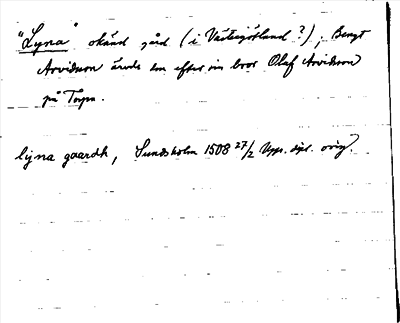 "Lyna" okänd gård (i Västergötland?), Bengt
Arvidsson ärvde den efter sin bror Olof Arvidsson
på Torpa.
lijna gaardh, Sundsholm 1508 27/2 Upps. dipl. orig.